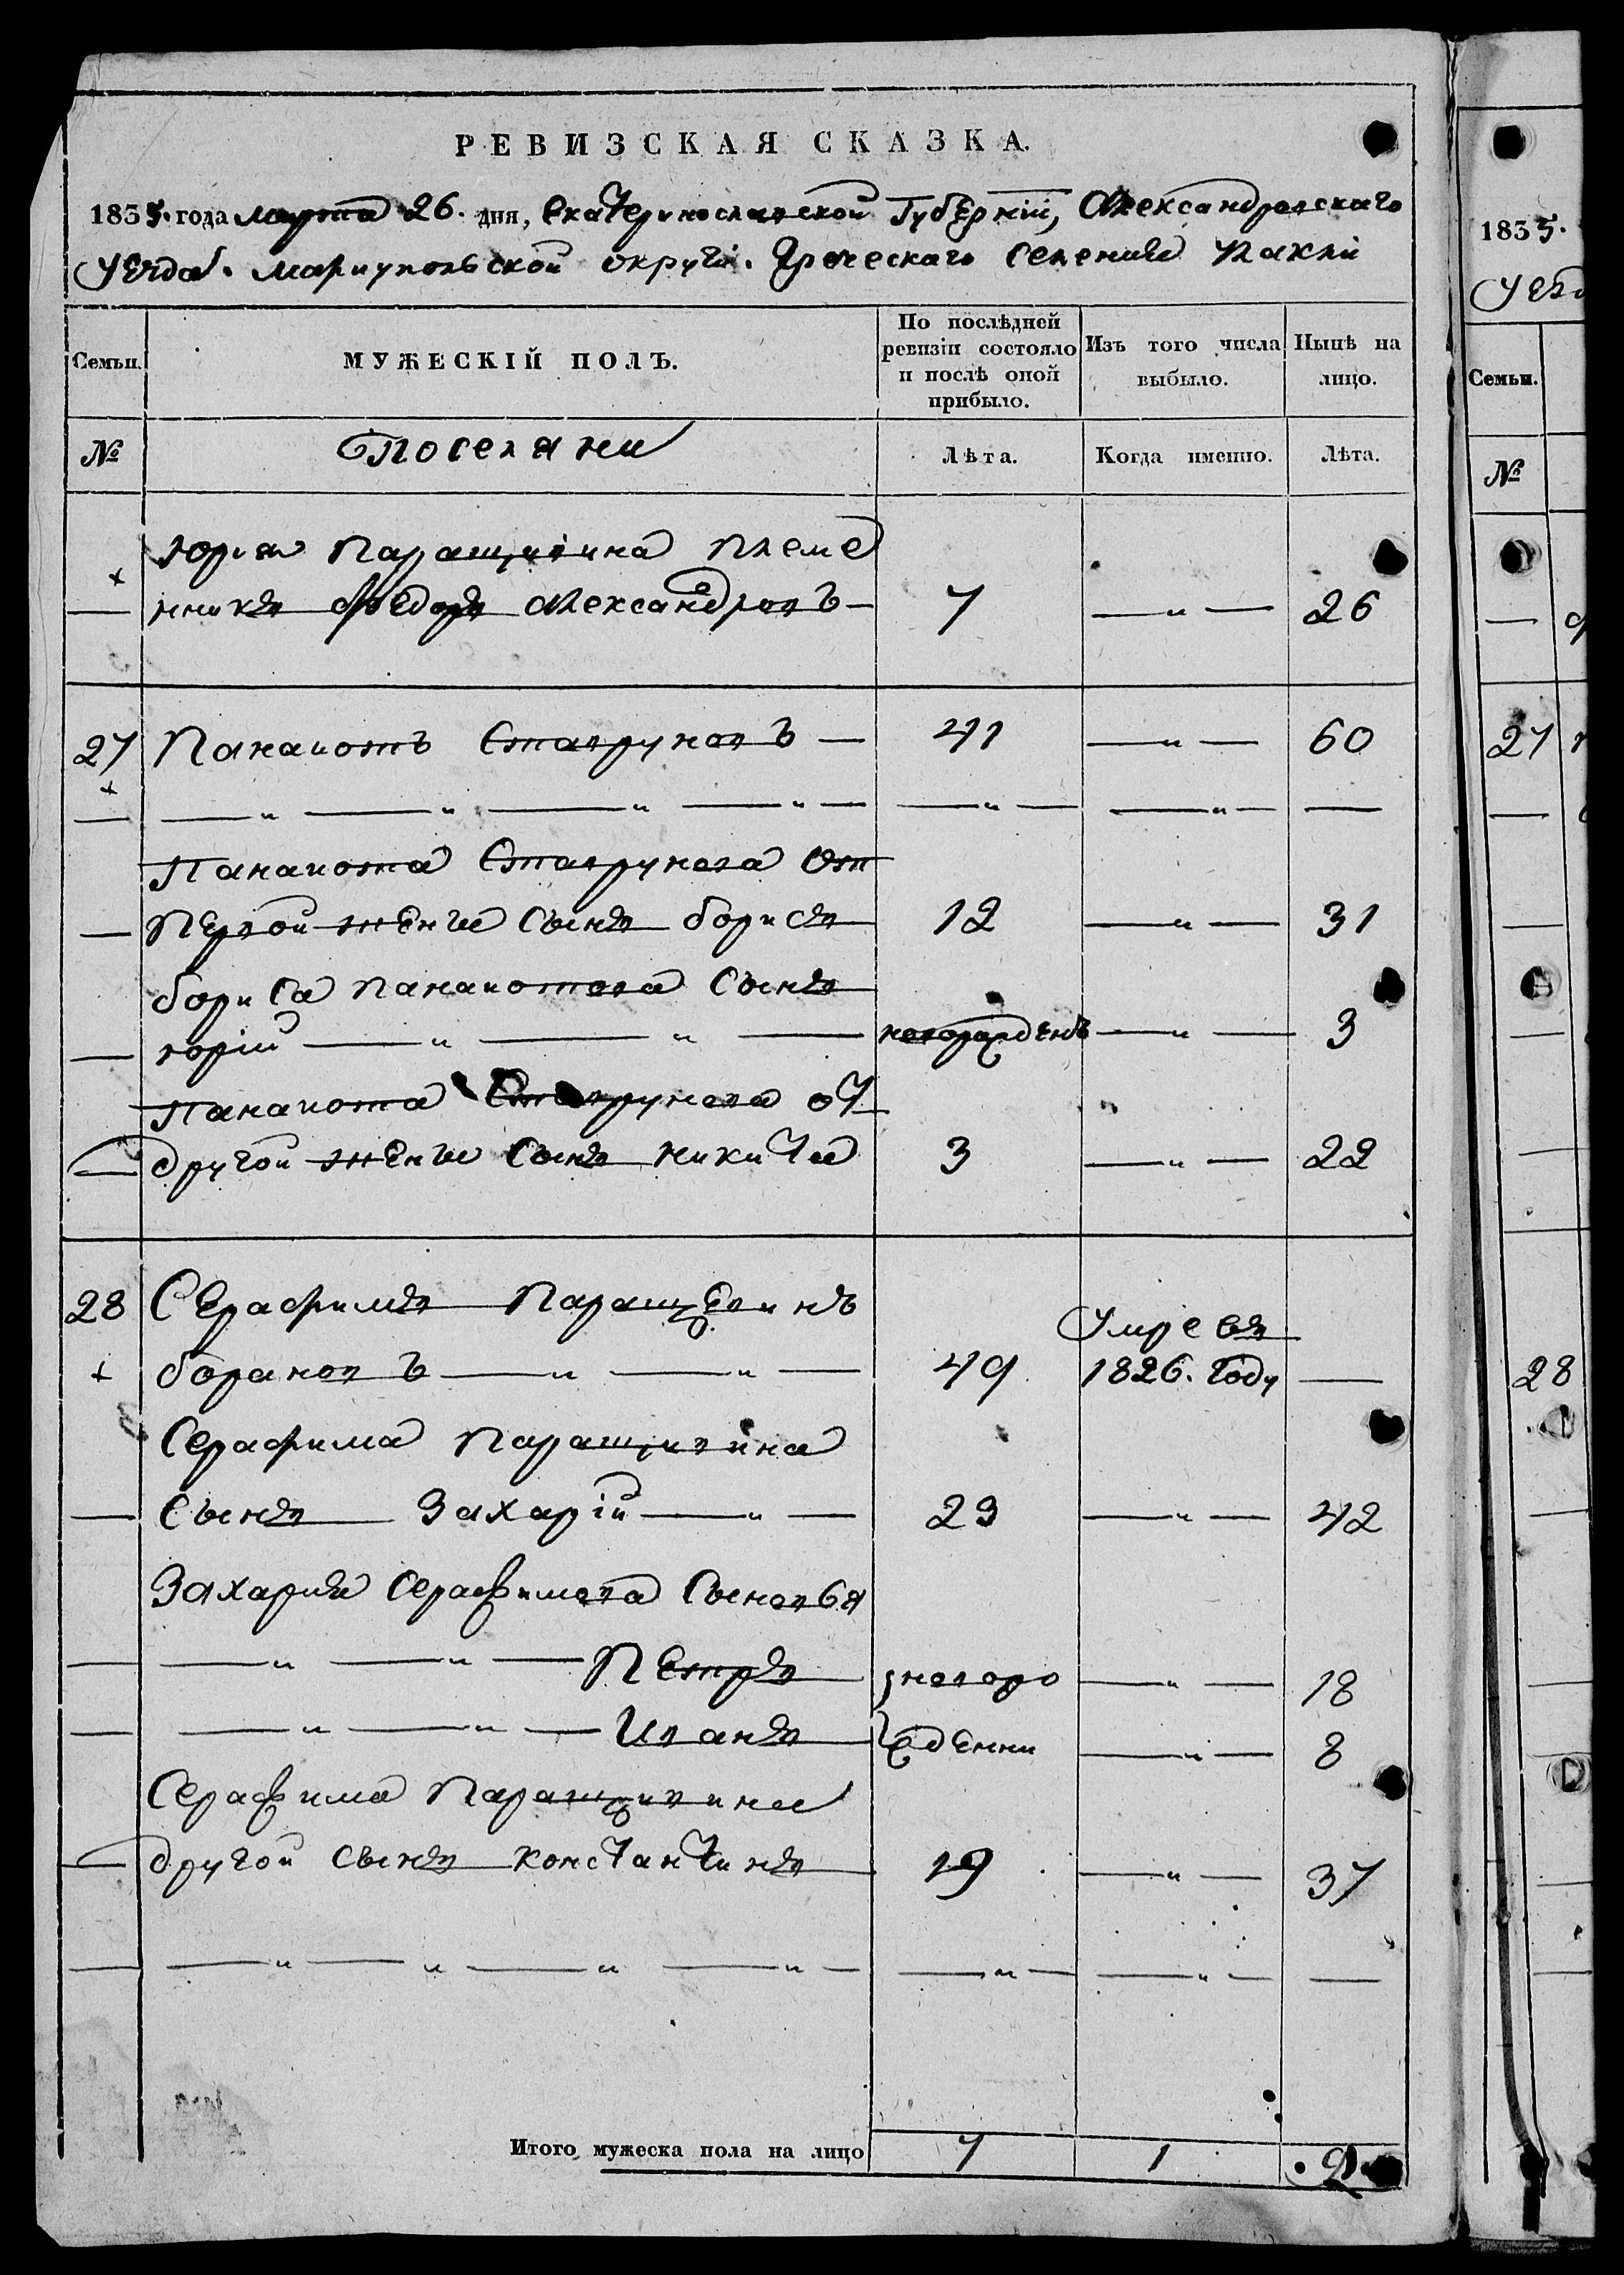 РЕВИЗСКАЯ СКАЗКА.
1835. года марта 26. дня, Екатеринославской Губерніи, Александровскаго
Уезда. мариупольской округи. Греческаго Селения
Семьи.
МУЖЕСКІЙ ПОЛЪ.
По послѣдней ревизіи состояло и послѣ оной прибыло.
Изъ того числа выбыло.
Нынѣ на лицо.
№
Поселяни
Лѣта.
Когда именно.
Лѣта.
юрия Паращивина племе
нникъ Федоръ Александровъ — 7 — „ — 26
27 Панаиотъ Ставруновъ — 41 — „ — 60
Панаиота Ставрунова От
— Первой жены Сынъ борисъ 12 — „ — 31
бориса панаиотова Сынъ
— юрій — „ — „ — новорожденъ — „ — 3
панаиота Ставрунова от
— другой жены Сынъ никита 3 — „ — 22
28 Серафимъ Паращевинъ
Умре въ
борановъ — „ — „ — 49 1826. году —
Серафима Паращивина
— Сынъ Захарій — „ — 23 — „ — 42
Захария Серафимова Сыновья
— — „ — „ — Петръ новоро — „ — 18
— — „ — „ — Иванъ жденни — „ — 8
Серафима Паращивина
— другой сынъ константинъ 19 — „ — 37
Итого мужеска пола на лицо 7 1
1835.
Уезд
Семьи.
№
27
28